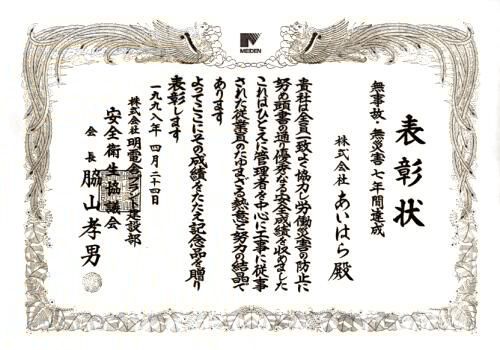 MEIDEN
表彰状
無事故・無災害七年間達成
株式会社 あいはら殿
貴社は全員一致よく協力し労働災害の防止に
努め頭書の通り優秀なる安全成績を収めました
これはひとえに管理者を中心に工事に従事
された従業員のたゆまざる熱意と努力の結晶で
あります
よってここにその成績をたたえ記念品を贈り
表彰します
一九九八年 四月二十四日
株式会社 明電舎プラント建設部
安全衛生協議会
会長 脇山孝男